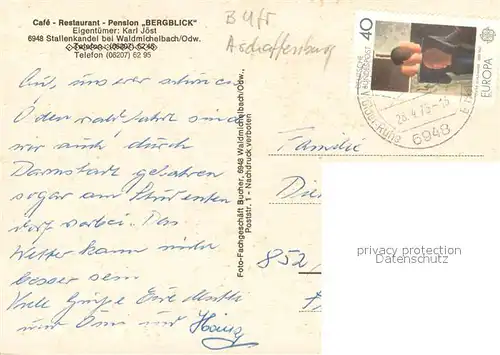 Café - Restaurant - Pension „BERGBLICK"
Eigentümer: Karl Jöst
6948 Stallenkandel bei Waldmichelbach/Odw.
Telefon (06207) 62 95
B Ufr
Aschaffenburg
40
DEUTSCHE
BUNDESPOST
EUROPA
28.4.75-16
6948
Auf unserer schönen
Odenwaldfahrt sind
wir auch durch
Darmstadt gefahren
sogar am Studenten
dorf vorbei. Das
Wetter kann nicht
besser sein
Viele Grüße Eure Mutti
und Oma und Heinz
Foto-Fachgeschäft Bucher, 6948 Waldmichelbach/Odw.
Poststr. 1 - Nachdruck verboten
Familie
852
privacy protection
www.ansichtskarten-center.de